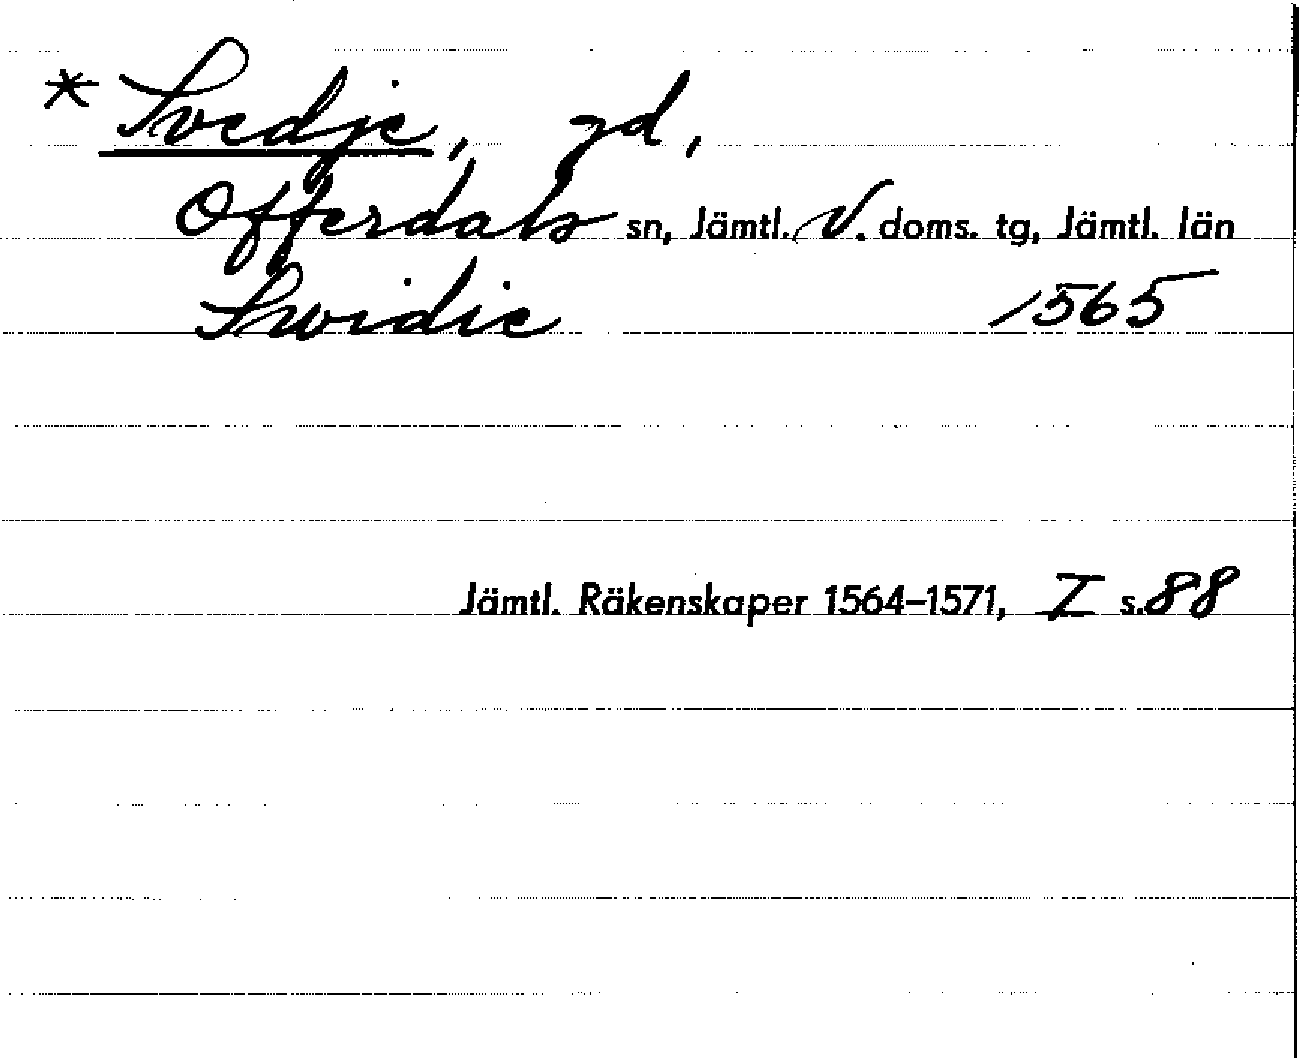 * Svedje, gd,
Offerdals sn, Jämtl. V. doms. tg, Jämtl. län
Swidie 1565
Jämtl. Räkenskaper 1564–1571, I s. 88